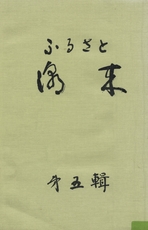 ふるさと
潮来
第五輯